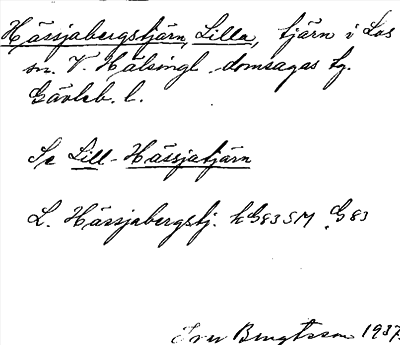 Hässjabergstjärn, Lilla, tjärn i Los
sn. V. Hälsingl. domsagas tg.
Gävleb. l.
Se Lill-Hässjatjärn
L. Hässjabergstj. hG83SM G83
Iver Bengtsson 1937.